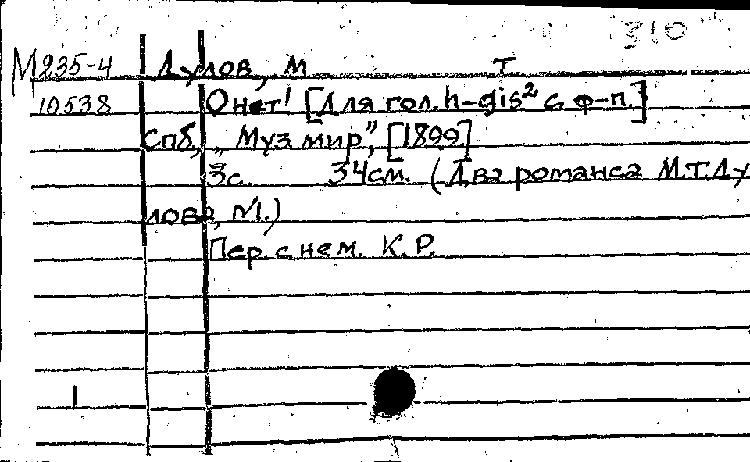 310
М235-4 Дулов, М Т
10538 О нет! [Для гол. h-gis² с ф-п.]
Спб, „Муз мир”, [1899]
3с. 34см. (Два романса М.Т.Ду
лова, №1.)
Пер. с нем. К.Р.